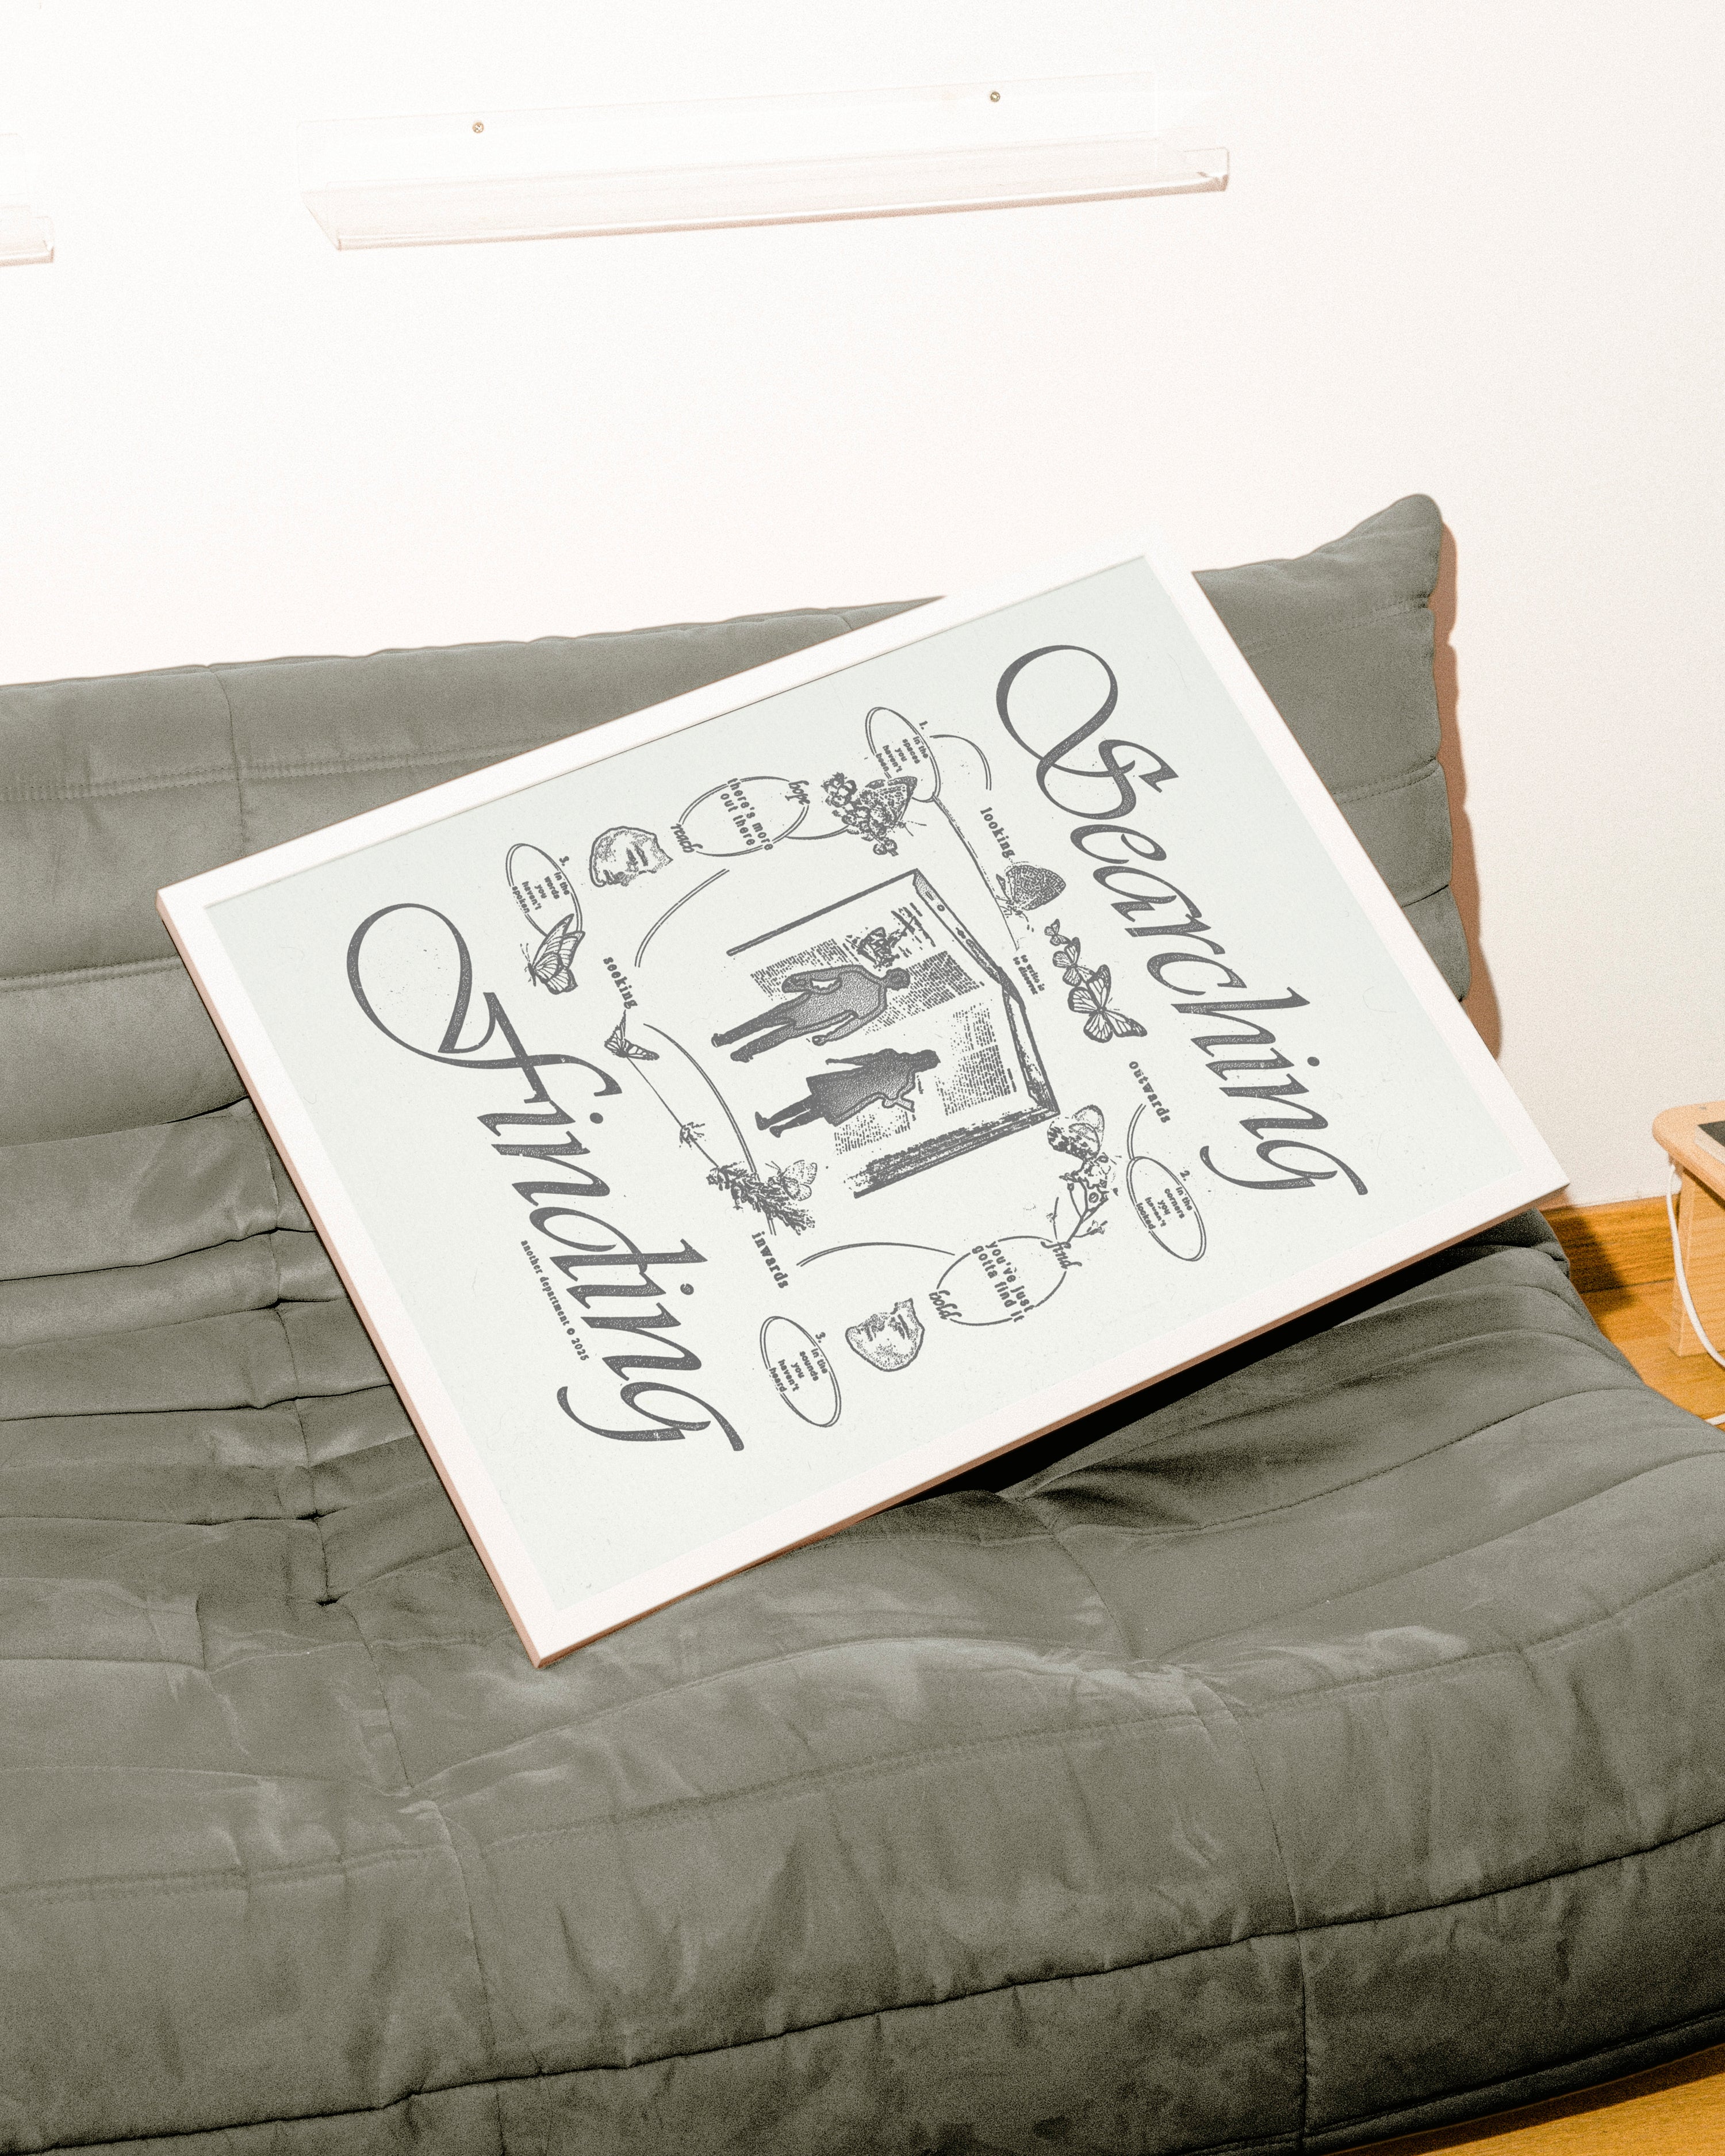 Searching
1.
in the
spaces
you
haven't
been
looking
to write is
to discover
outwards
2.
in the
corners
you
haven't
looked
hope
there's more
out there
reach
find
you've just
gotta find it
hold
3.
in the
words
you
haven't
spoken
seeking
inwards
3.
in the
sounds
you
haven't
heard
Finding
another department © 2025